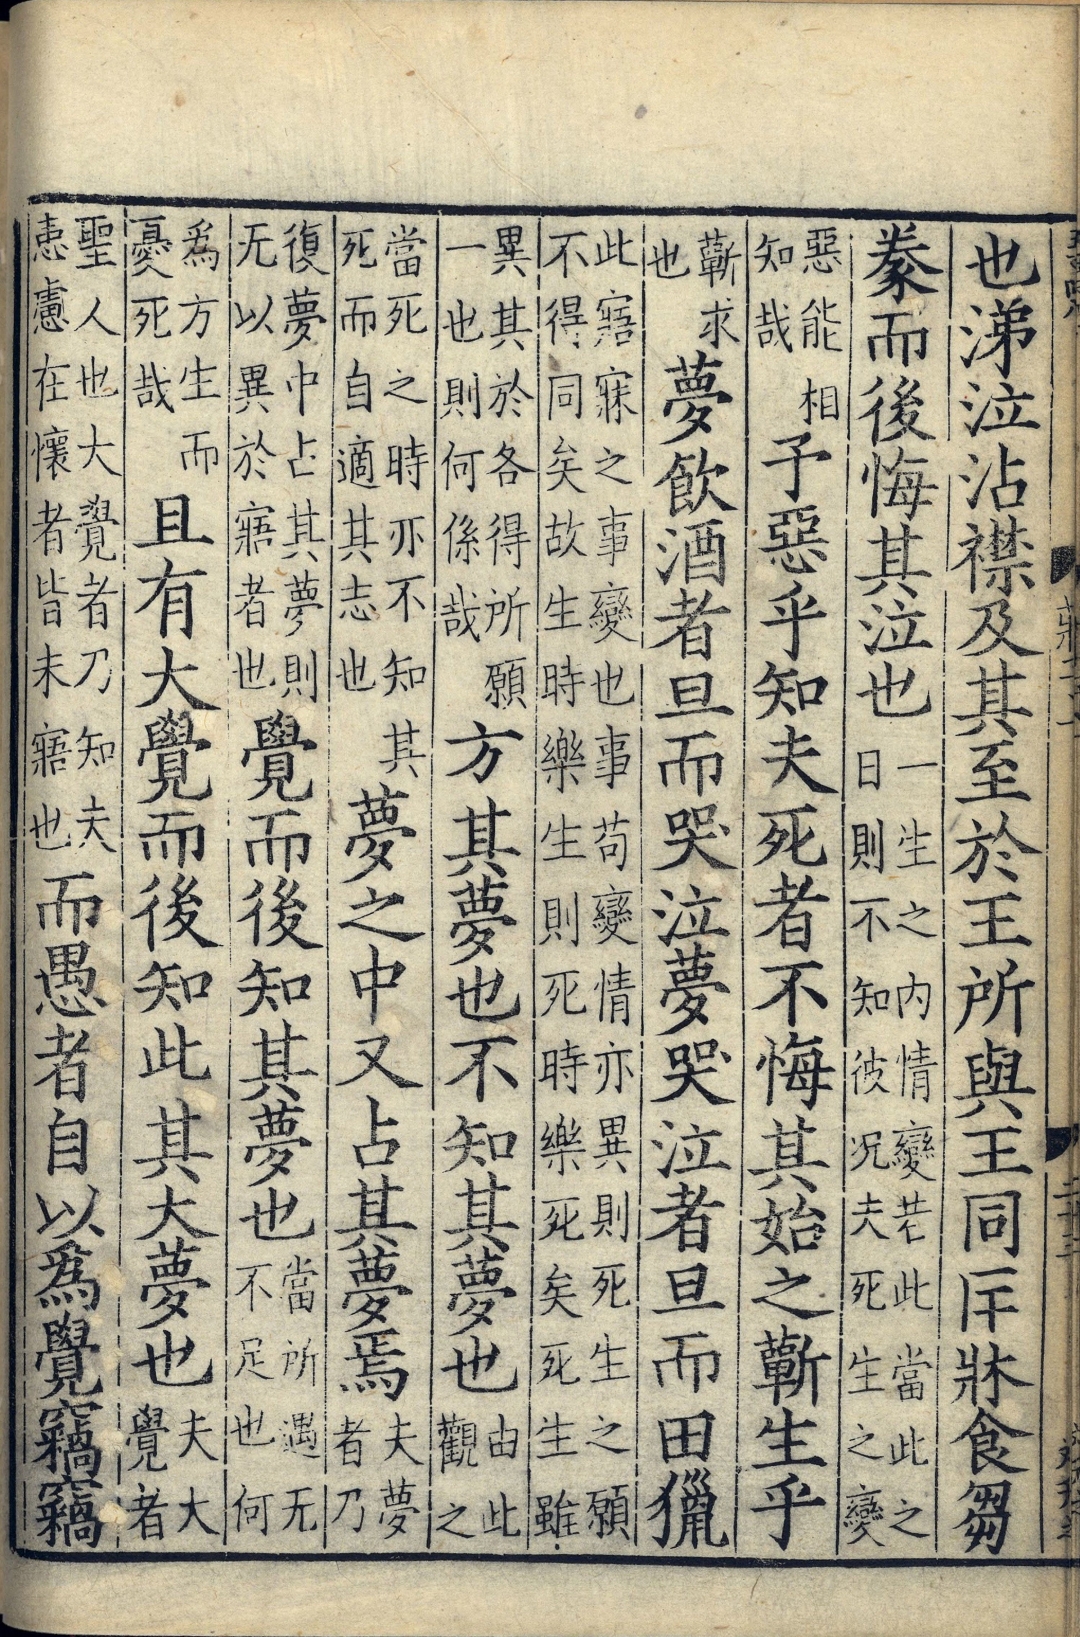 也涕泣沾襟及其至於王所與王同匡牀食芻
豢而後悔其泣也一生之內情變若此當此之日則不知彼況夫死生之變
惡能相知哉予惡乎知夫死者不悔其始之蘄生乎
蘄求也夢飲酒者旦而哭泣夢哭泣者旦而田獵
此寤寐之事變也事苟變情亦異則死生之願不得同矣故生時樂生則死時樂死矣死生雖
異其於各得所願一也則何係哉方其夢也不知其夢也由此觀之
當死之時亦不知其死而自適其志也夢之中又占其夢焉夫夢者乃
復夢中占其夢則无以異於寤者也覺而後知其夢也當所遇无不足也何
爲方生而憂死哉且有大覺而後知此其大夢也夫大覺者
聖人也大覺者乃知夫恚慮在懷者皆未寤也而愚者自以爲覺竊竊